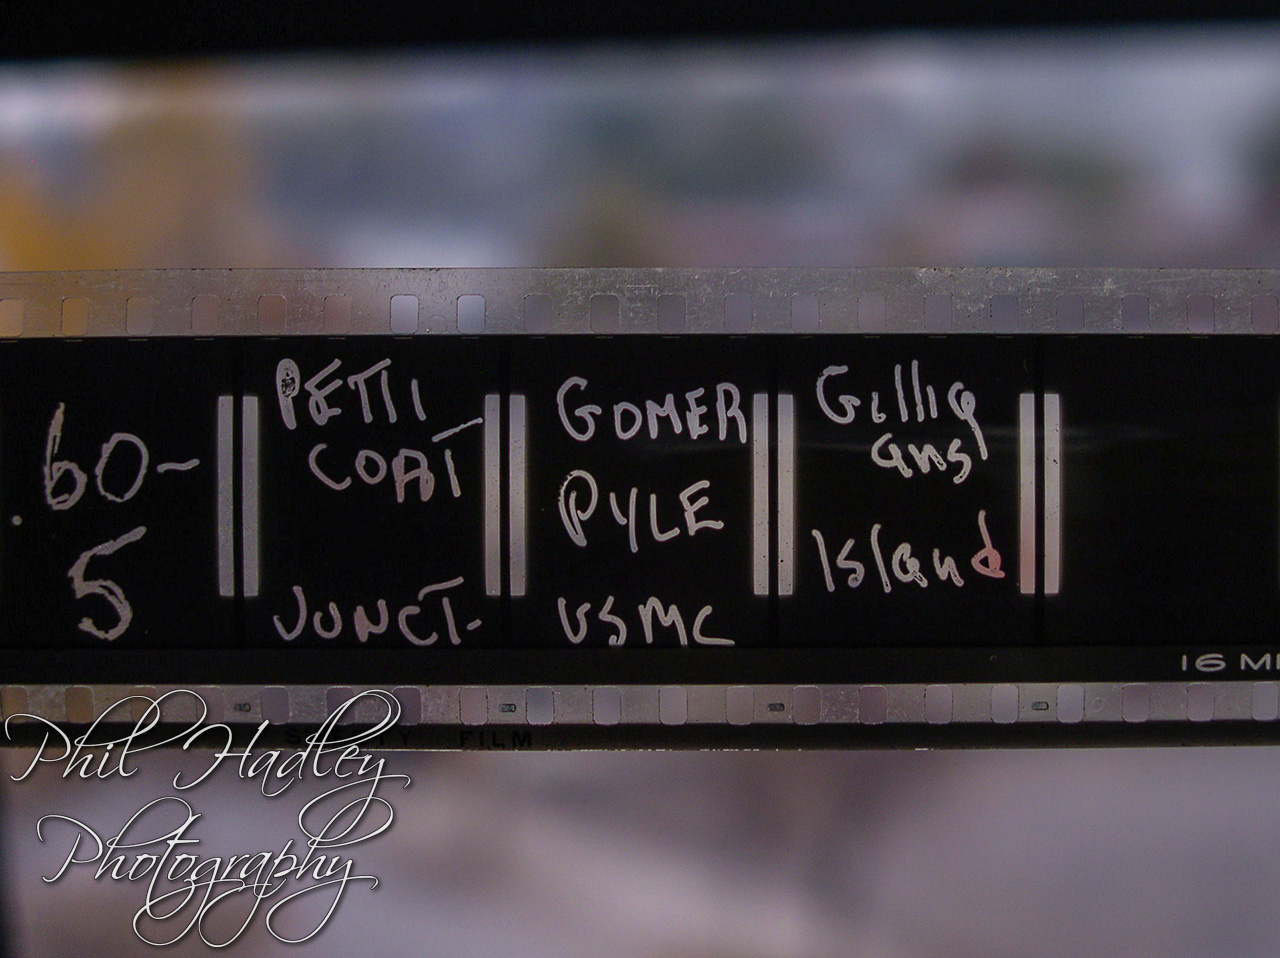 60-
5
PETTI
COAT
JUNCT-
GOMER
PYLE
USMC
Gillig
ans
Island
16 M
SAFETY FILM
Phil Hadley
Photography